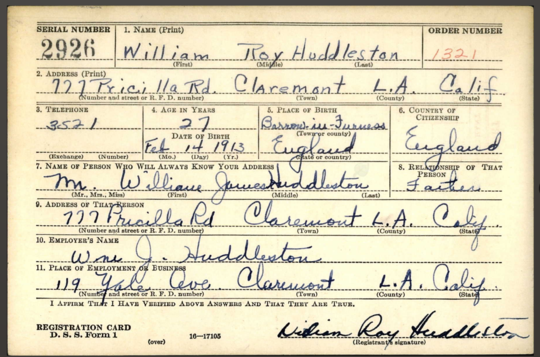 SERIAL NUMBER 1. NAME (Print) ORDER NUMBER
2926 William Roy Huddleston 1321
(First) (Middle) (Last)
2. ADDRESS (Print)
777 Pricilla Rd. Claremont L.A. Calif.
(Number and street or R. F. D. number) (Town) (County) (State)
3. TELEPHONE 4. AGE IN YEARS 5. PLACE OF BIRTH 6. COUNTRY OF CITIZENSHIP
3521 27 Barrow-in-Furness England
(Town or county)
DATE OF BIRTH
Feb 14 1913 England
(Exchange) (Number) (Mo.) (Day) (Yr.) (State or country)
7. NAME OF PERSON WHO WILL ALWAYS KNOW YOUR ADDRESS 8. RELATIONSHIP OF THAT PERSON
Mr. William James Huddleston Father
(Mr., Mrs., Miss) (First) (Middle) (Last)
9. ADDRESS OF THAT PERSON
777 Pricilla Rd Claremont L.A. Calif.
(Number and street or R. F. D. number) (Town) (County) (State)
10. EMPLOYER'S NAME
Wm. J. Huddleston
11. PLACE OF EMPLOYMENT OR BUSINESS
119 Yale Ave. Claremont L.A. Calif.
(Number and street or R. F. D. number) (Town) (County) (State)
I AFFIRM THAT I HAVE VERIFIED ABOVE ANSWERS AND THAT THEY ARE TRUE.
William Roy Huddleston
REGISTRATION CARD
D. S. S. Form 1 (over) 16—17105 (Registrant's signature)